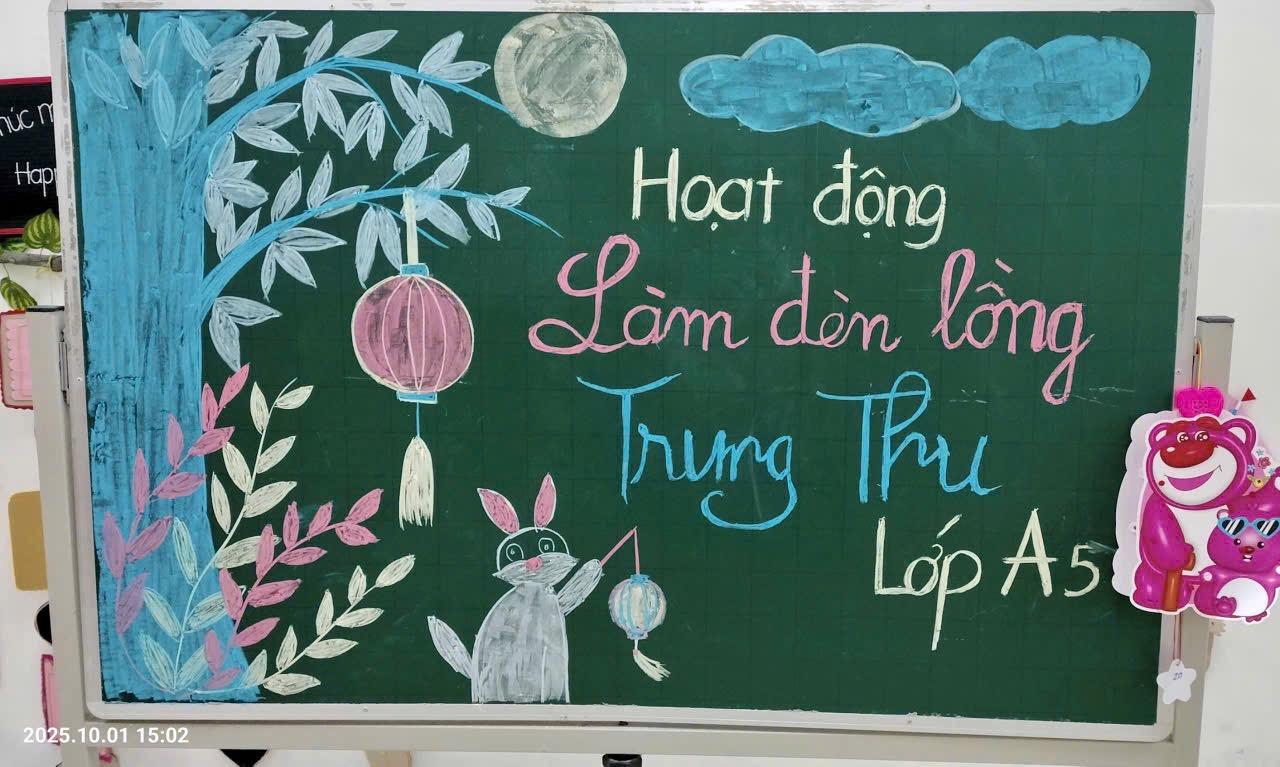 Hoạt động
Làm đèn lồng
Trung Thu
Lớp A5
Hap
2025.10.01 15:02